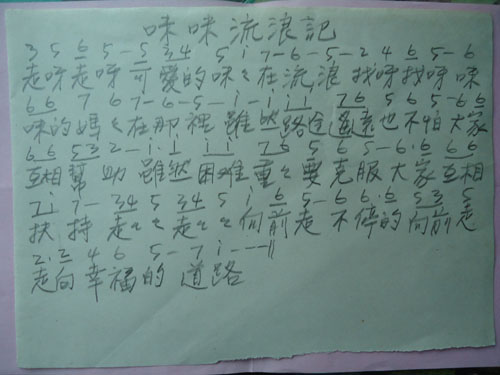 咪咪流浪記
3 5 6 5 - 5 34 5 i 7 - 6 - 5 - 2 4 6 5 - 6
走呀走呀可愛的咪々在流浪找呀找呀咪
66 7 6 7 - 6 - 5 - i - i i i 76 5 6 5 - 66
咪的媽々在那裡雖然路途遙遠也不怕大家
66 53 2 - i · i i i 76 5 6 5 - 6 · 6 66
互相幫助雖然困难重々要克服大家互相
7 i 7 - 34 5 34 5 i 6 5 - 66 · 6 53 5
扶持走々々走々々向前走不停的向前走
2 · 2 4 6 5 - 7 i - - - ||
走向幸福的道路